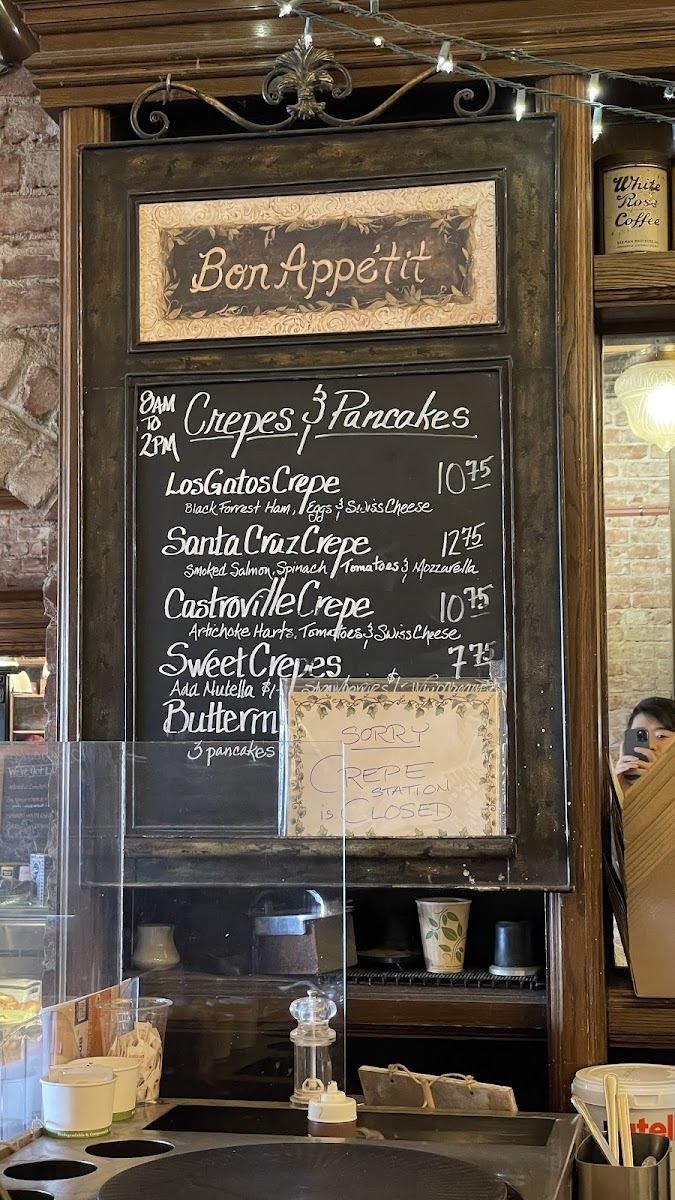 White
Rose
Coffee
Bon Appétit
8AM
TO
2PM
Crepes & Pancakes
Los Gatos Crepe 10 75
Black Forrest Ham, Eggs & Swiss Cheese
Santa Cruz Crepe 12 75
Smoked Salmon, Spinach, Tomatoes & Mozzarella
Castroville Crepe 10 75
Artichoke Harts, Tomatoes & Swiss Cheese
Sweet Crepes 7 75
Add Nutella $1- Strawberries $
Butterm
3 pancakes
SORRY
CREPE
STATION
is CLOSED
We've Got
utel